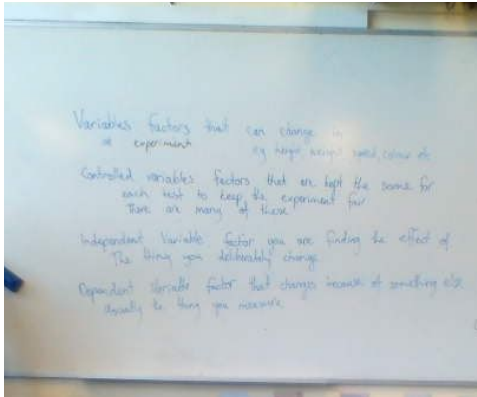 Variables factors that can change in
an experiment e.g height, weight, speed, colour etc
Controlled variables factors that are kept the same for
each test to keep the experiment fair
There are many of these
Independent Variable factor you are finding the effect of
The thing you deliberately change
Dependent Variable factor that changes because of something else
usually the thing you measure